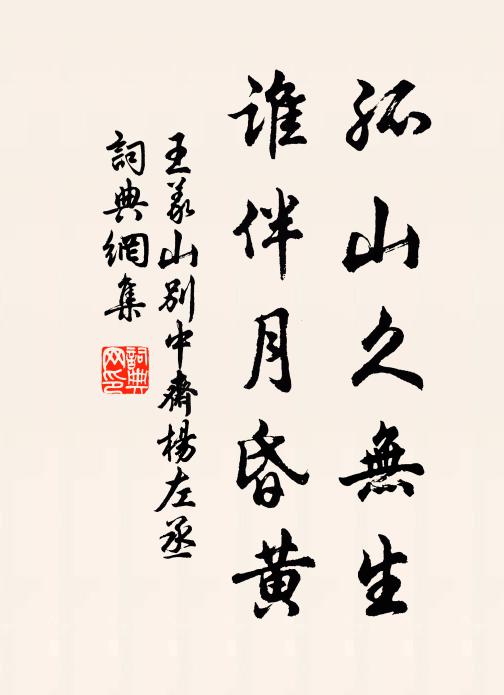 孤山久無生
誰伴月昏黃
王義山別中齋楊左丞
詞典網集
詞典網印